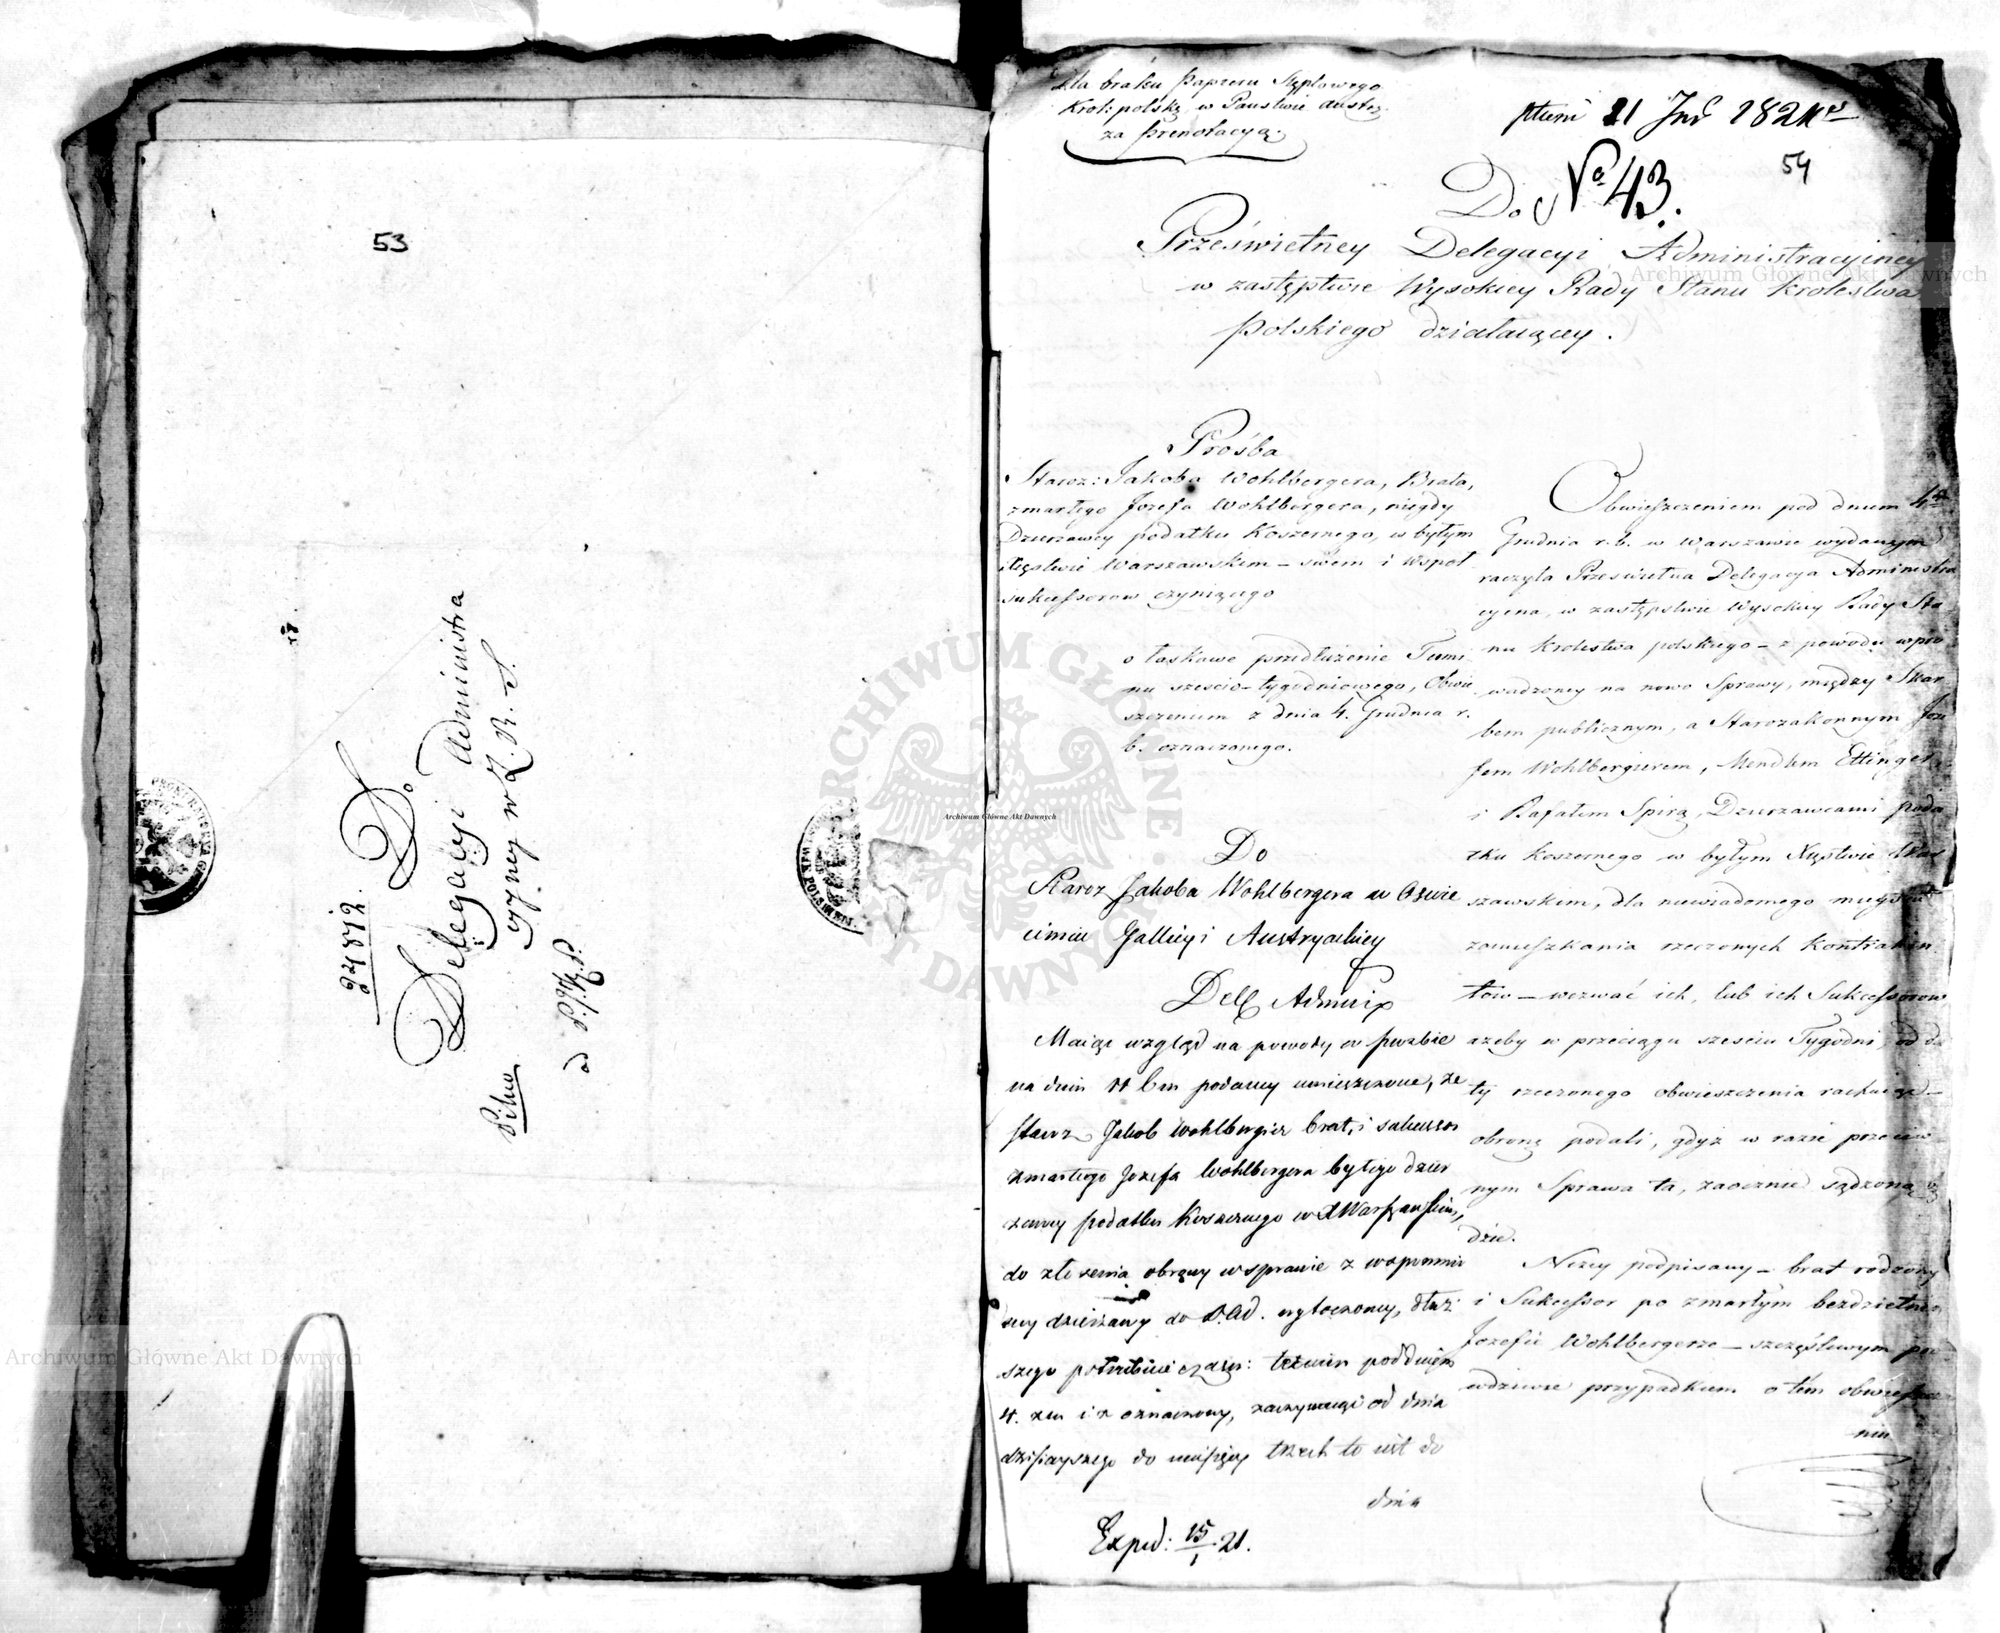 53
24812.
Do
Delegacyi Administra
cyjney w Z. R. S.
Pilno
dla braku papieru Stęplowego
Krol: polsk: w Państwie Austr:
za prenotacyą.
21 1821
54
Do No 43.
Prześwietney Delegacyi Administracyiney
w zastępstwie Wysokiey Rady Stanu Krolestwa
Polskiego działaiącey.
Prośba
Staroz: Jakoba Wohlbergera, Brata,
zmarłego Jozefa Wohlbergera, niegdy
Dzierzawcy podatku Koszernego, w byłym
Xięstwie Warszawskim – swem i Wspoł
sukcessorow czyniącego
o łaskawe przedłużenie Termi
nu sześcio-tygodniowego, Obwie
szczeniem z dnia 4. Grudnia r.
b. oznaczonego.
Do
Staroz Jakoba Wohlbergera w Oswie
cimiu Gallicyi Austryackiey
Del Admin
Maiąc wzgląd na powody w prozbie
na dniu 11 bm podaney umieszczone, ze
Staroz Jakob Wohlberger brat, i sukcessor
zmarłego Jozefa Wohlbergera byłego dzier
zawcy podatku Koszernego w X Warszawskim,
do złożenia obrony w sprawie z wspomnio
ney dzierzawy do D. Ad. wytoczoney, dłuż
szego potrzebuie czasu: termin pod dniem
4. oznaczony, zaczynaiąc od dnia
dzisieyszego do miesięcy trzech to iest do
dnia
Exped: 15/1 21.
Obwieszczeniem pod dniem 4go
Grudnia r. b. w Warszawie wydanym
raczyła Prześwietna Delegacya Administra
cyina, w zastępstwie Wysokiey Rady Sta
nu Krolestwa polskiego – z powodu wpro
wadzoney na nowo Sprawy, między Skar
bem publicznym, a Starozakonnym Joze
fem Wohlbergerem, Mendlem Ettinger
i Rafałem Spirą, Dzierzawcami poda
tku koszernego w byłym Xięstwie War
szawskim, dla niewiadomego mieysca
zamieszkania rzeczonych Kontrahen
tow – wezwać ich, lub ich Sukcessorow
azeby w przeciągu sześciu Tygodni, od da
ty rzeczonego obwieszczenia rachuiąc –
obronę podali, gdyż w razie przeciw
nym Sprawa ta, zaocznie sądzoną bę
dzie.
Niżey podpisany – brat rodzony
i Sukcessor po zmarłym bezdzietnie
Jozefie Wohlbergerze – szczęśliwym pra
wdziwie przypadkiem o tem obwieszcze
niu